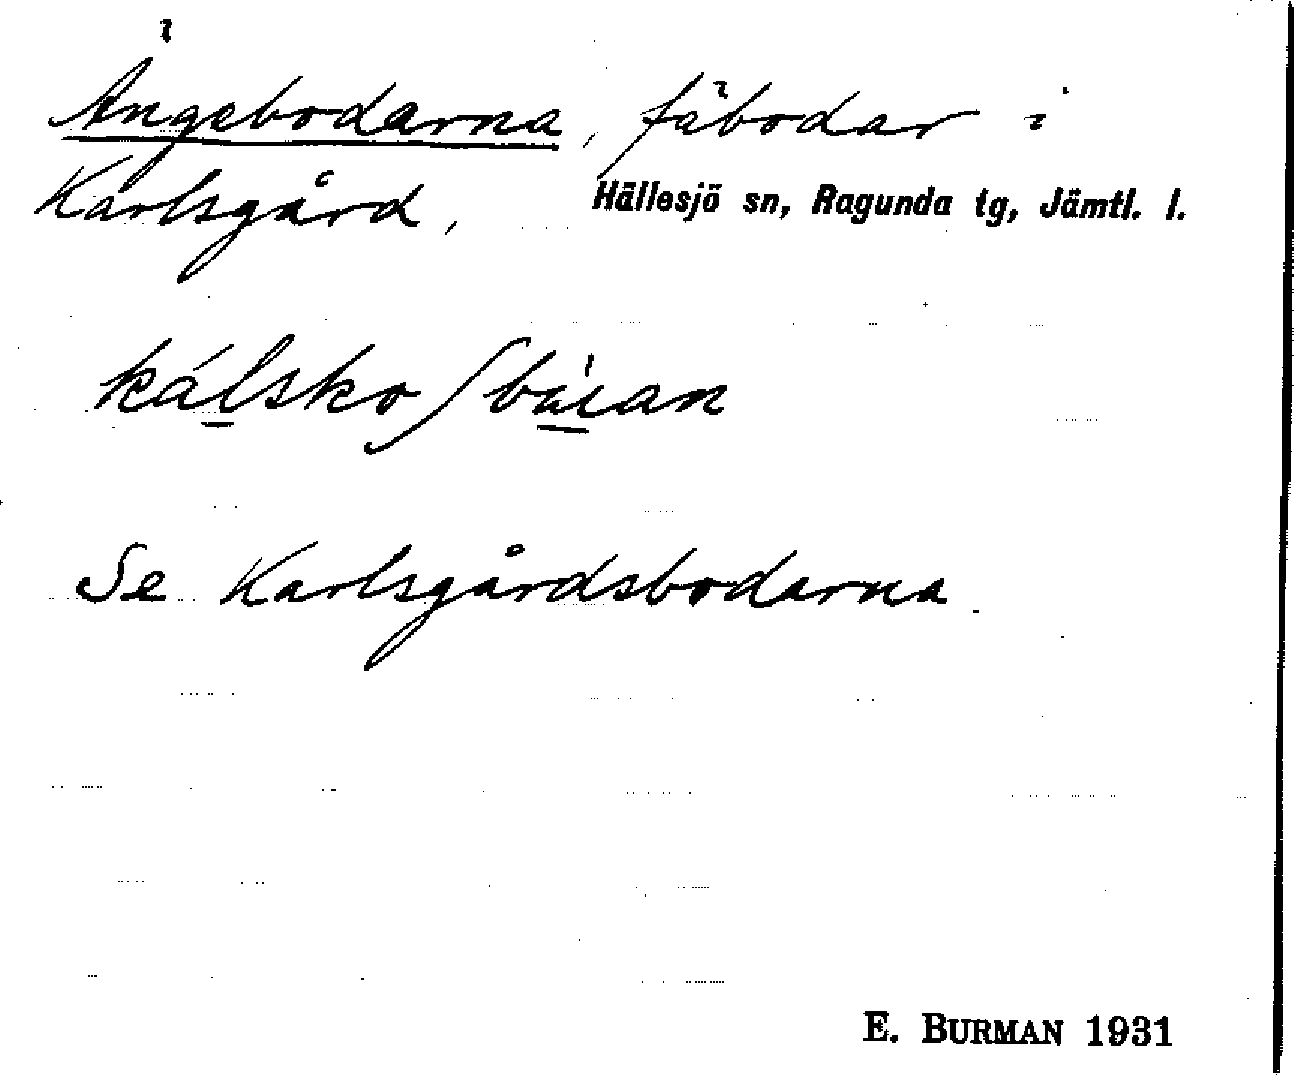 Ängebodarna, fäbodar i
Karlsgård, Hällesjö sn, Ragunda tg, Jämtl. l.
kálsko/búɩan
Se Karlsgårdsbodarna.
E. BURMAN 1931